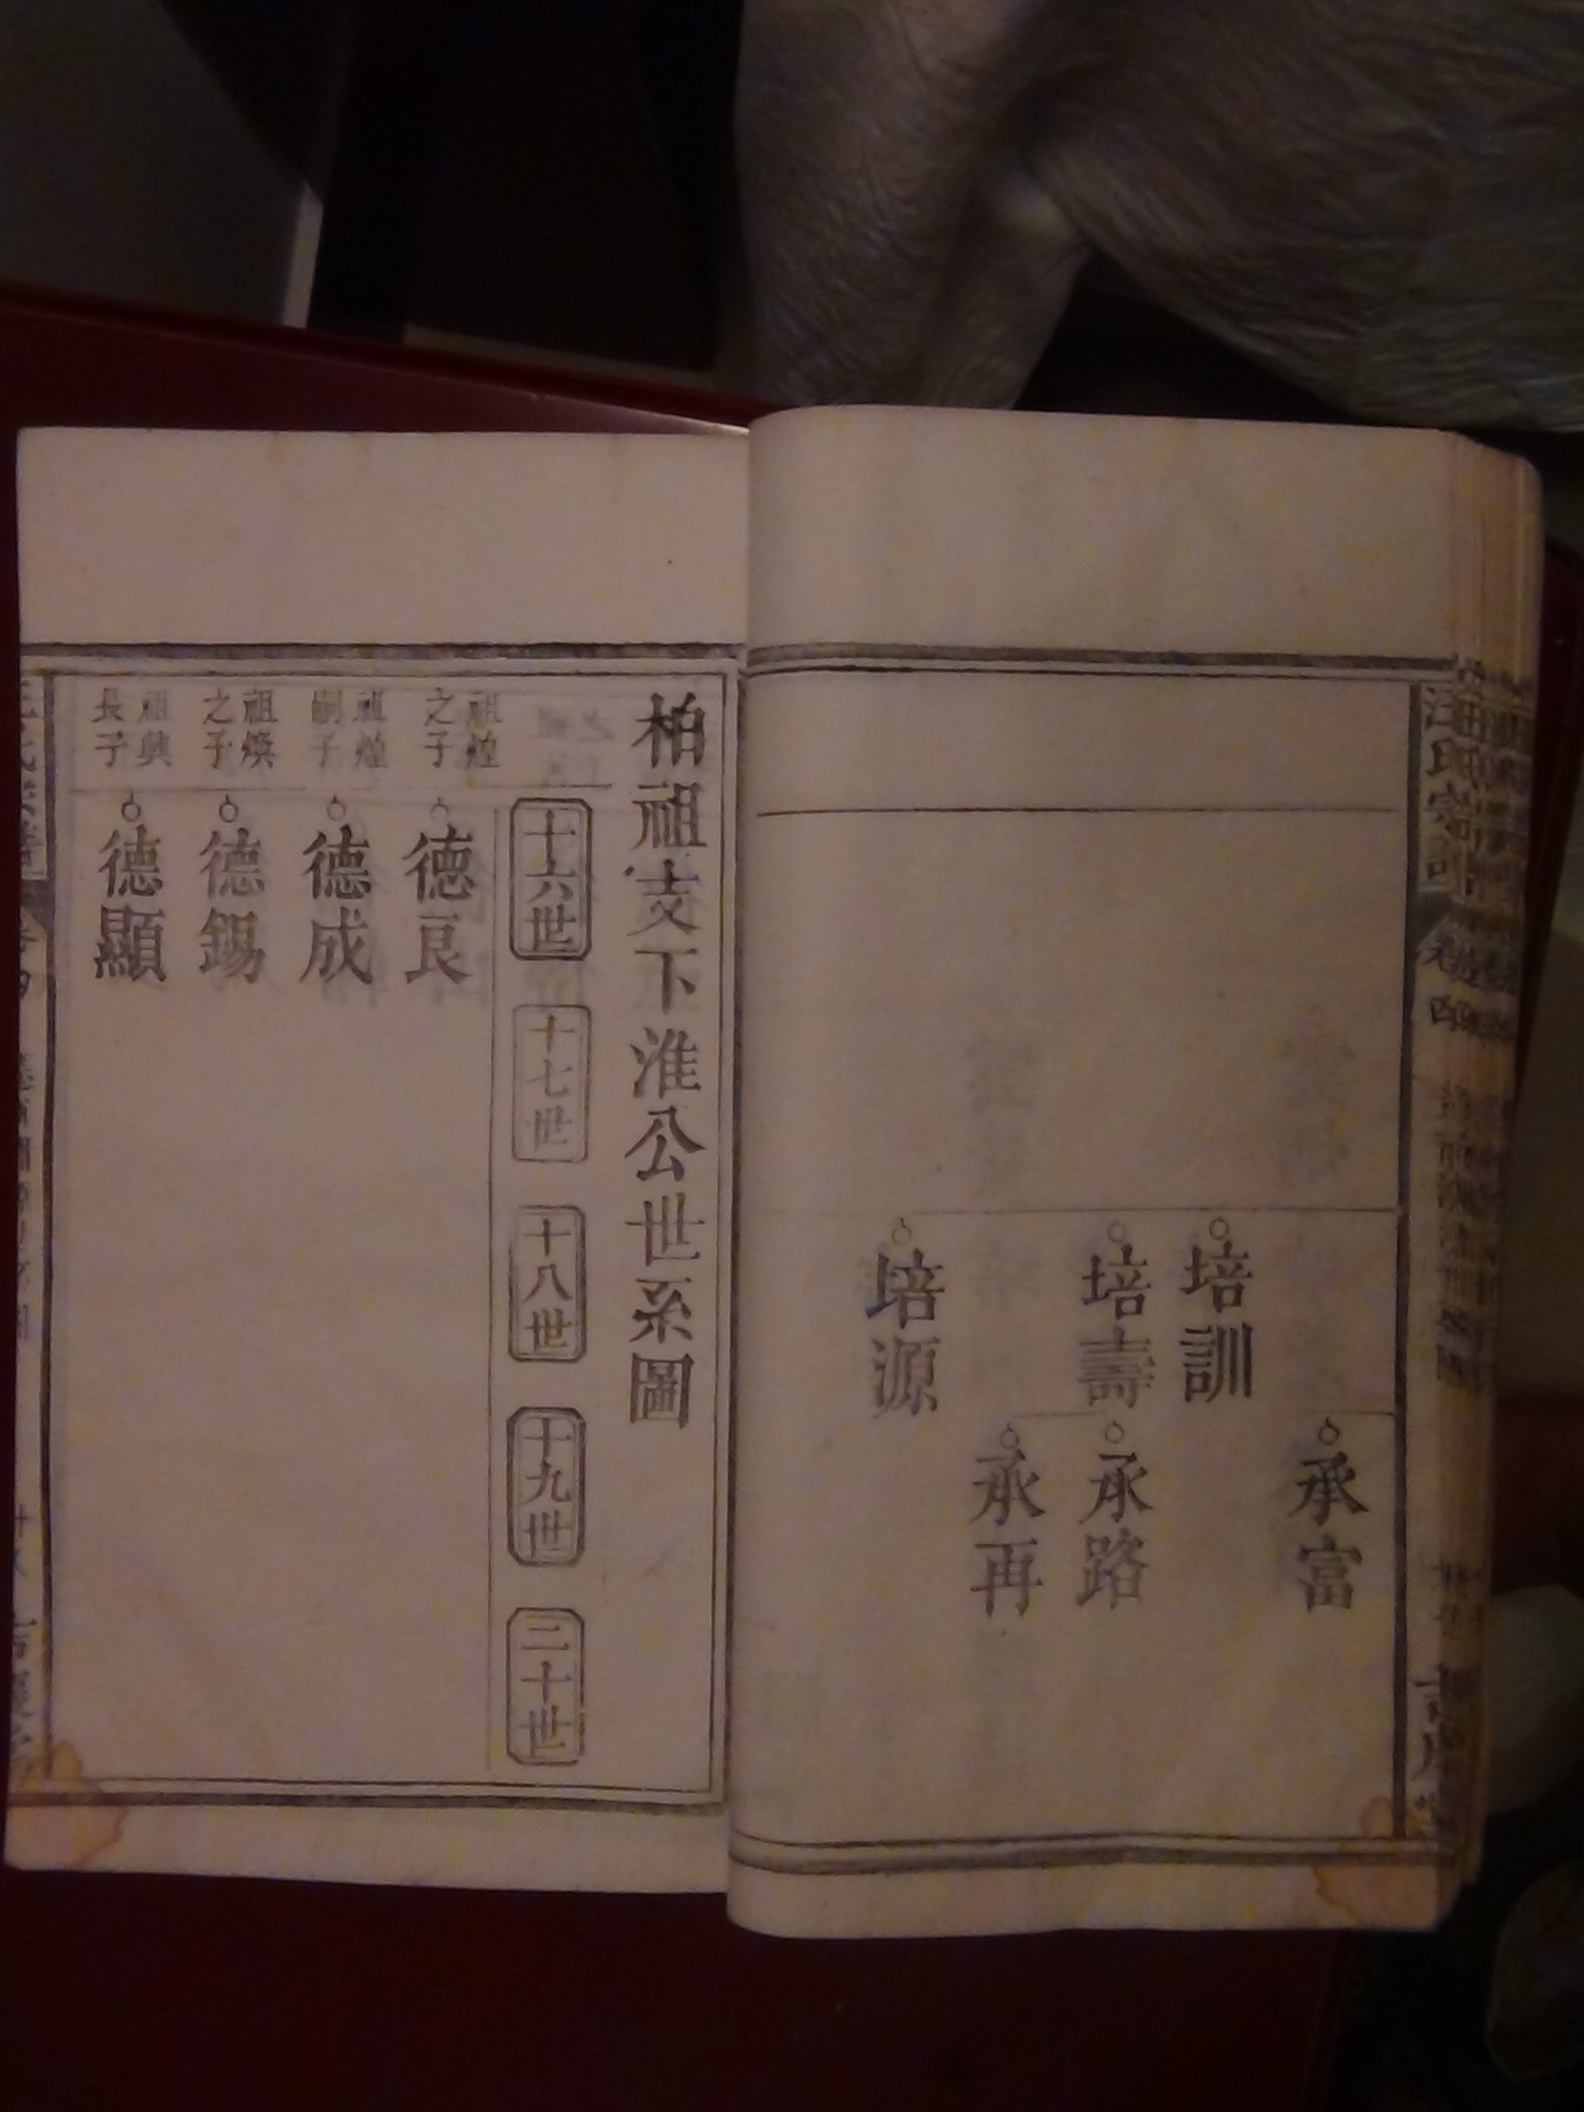 承富
培訓
培壽
承路
承再
培源
柏祖支下淮公世系圖
十六世
十七世
十八世
十九世
二十世
祖煌
之子
德良
祖煌
嗣子
德成
祖煥
之子
德錫
祖興
長子
德顯